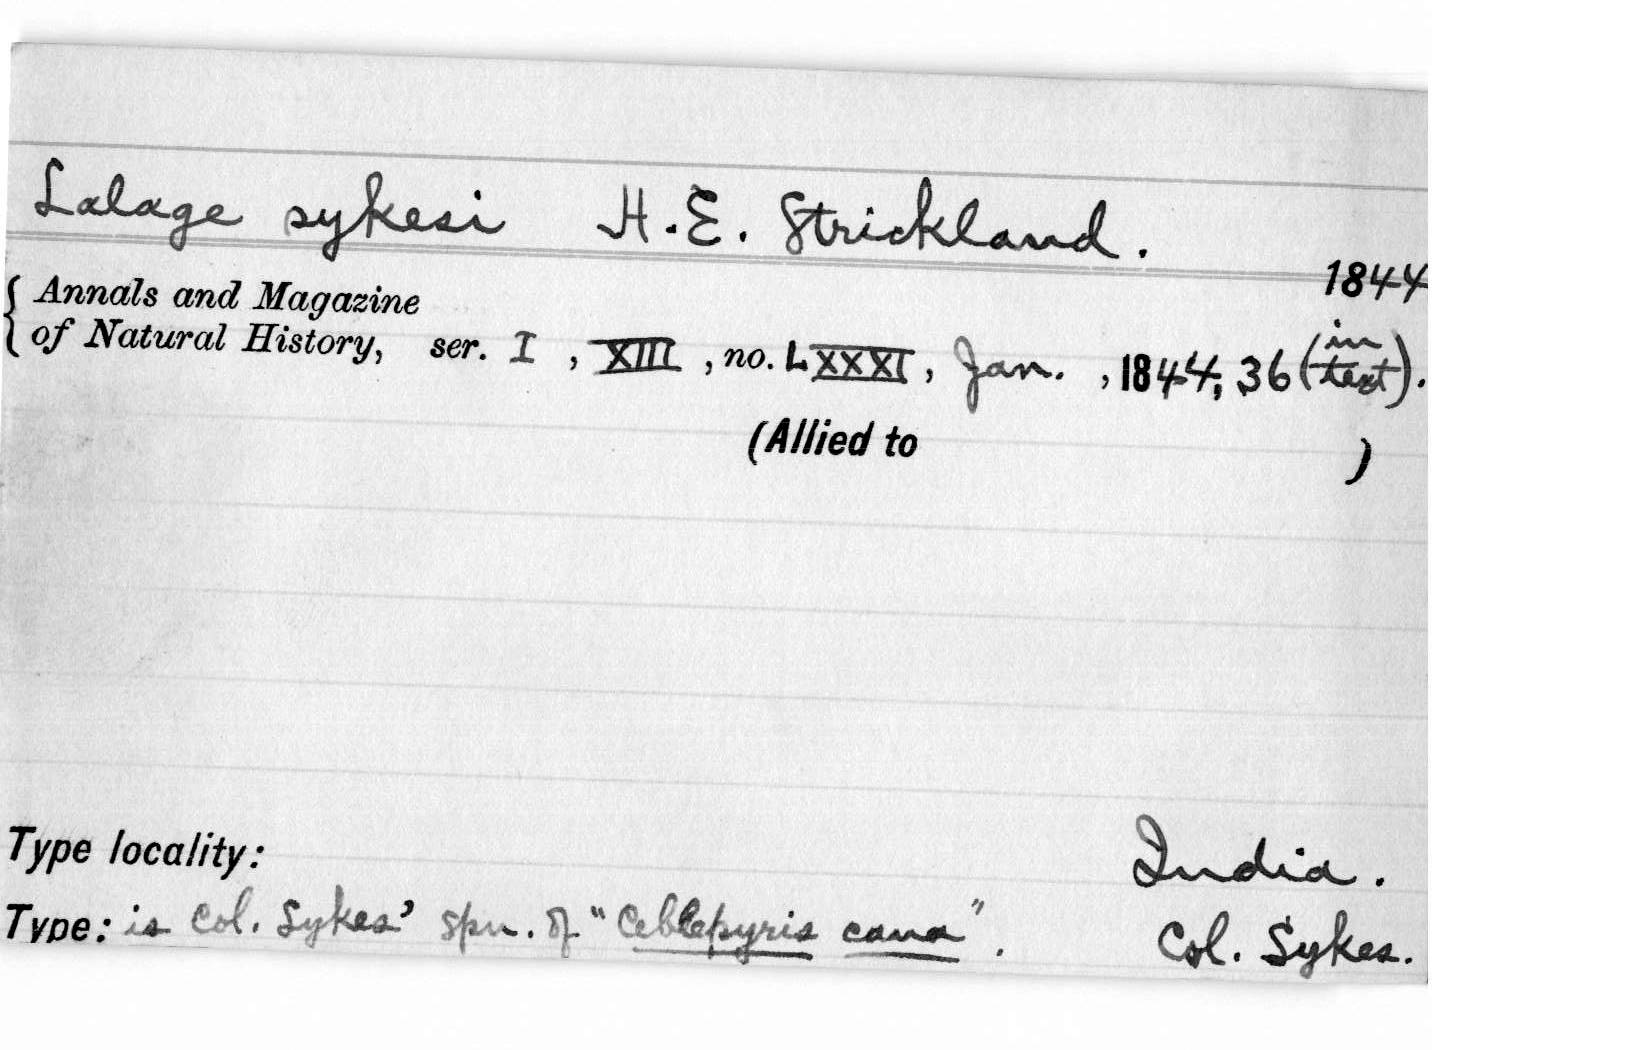 Lalage sykesi H.E. Strickland.
1844
{ Annals and Magazine
of Natural History, ser. I, XIII, no. LXXXI, Jan. , 1844, 36 (in text).
(Allied to )
Type locality: India.
Type: is Col. Sykes' spn. of "Ceblepyris cana". Col. Sykes.